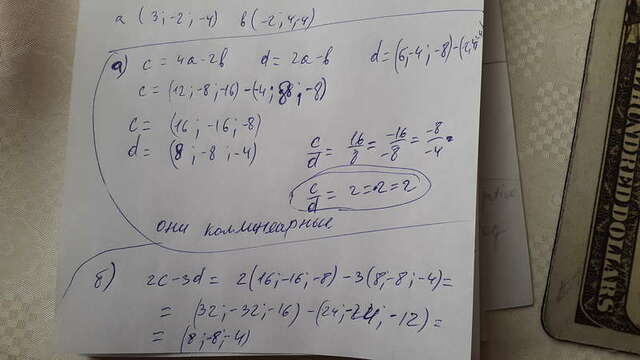 a (3;-2;-4) b(-2;4;4)
а) c = 4a-2b d = 2a-b d = (6;-4;-8)-
c = (12;-8;-16)-(-4;8;-8)
c = (16;-16;-8)
d = (8;-8;-4)
c/d = 16/8 = -16/-8 = -8/-4 =
c/d = 2=2=2
они коллинеарные
б) 2c-3d = 2(16;-16;-8)-3(8;-8;-4)=
= (32;-32;-16)-(24;-24;-12)=
= (8;-8;-4)
HUNDRED DOLLARS